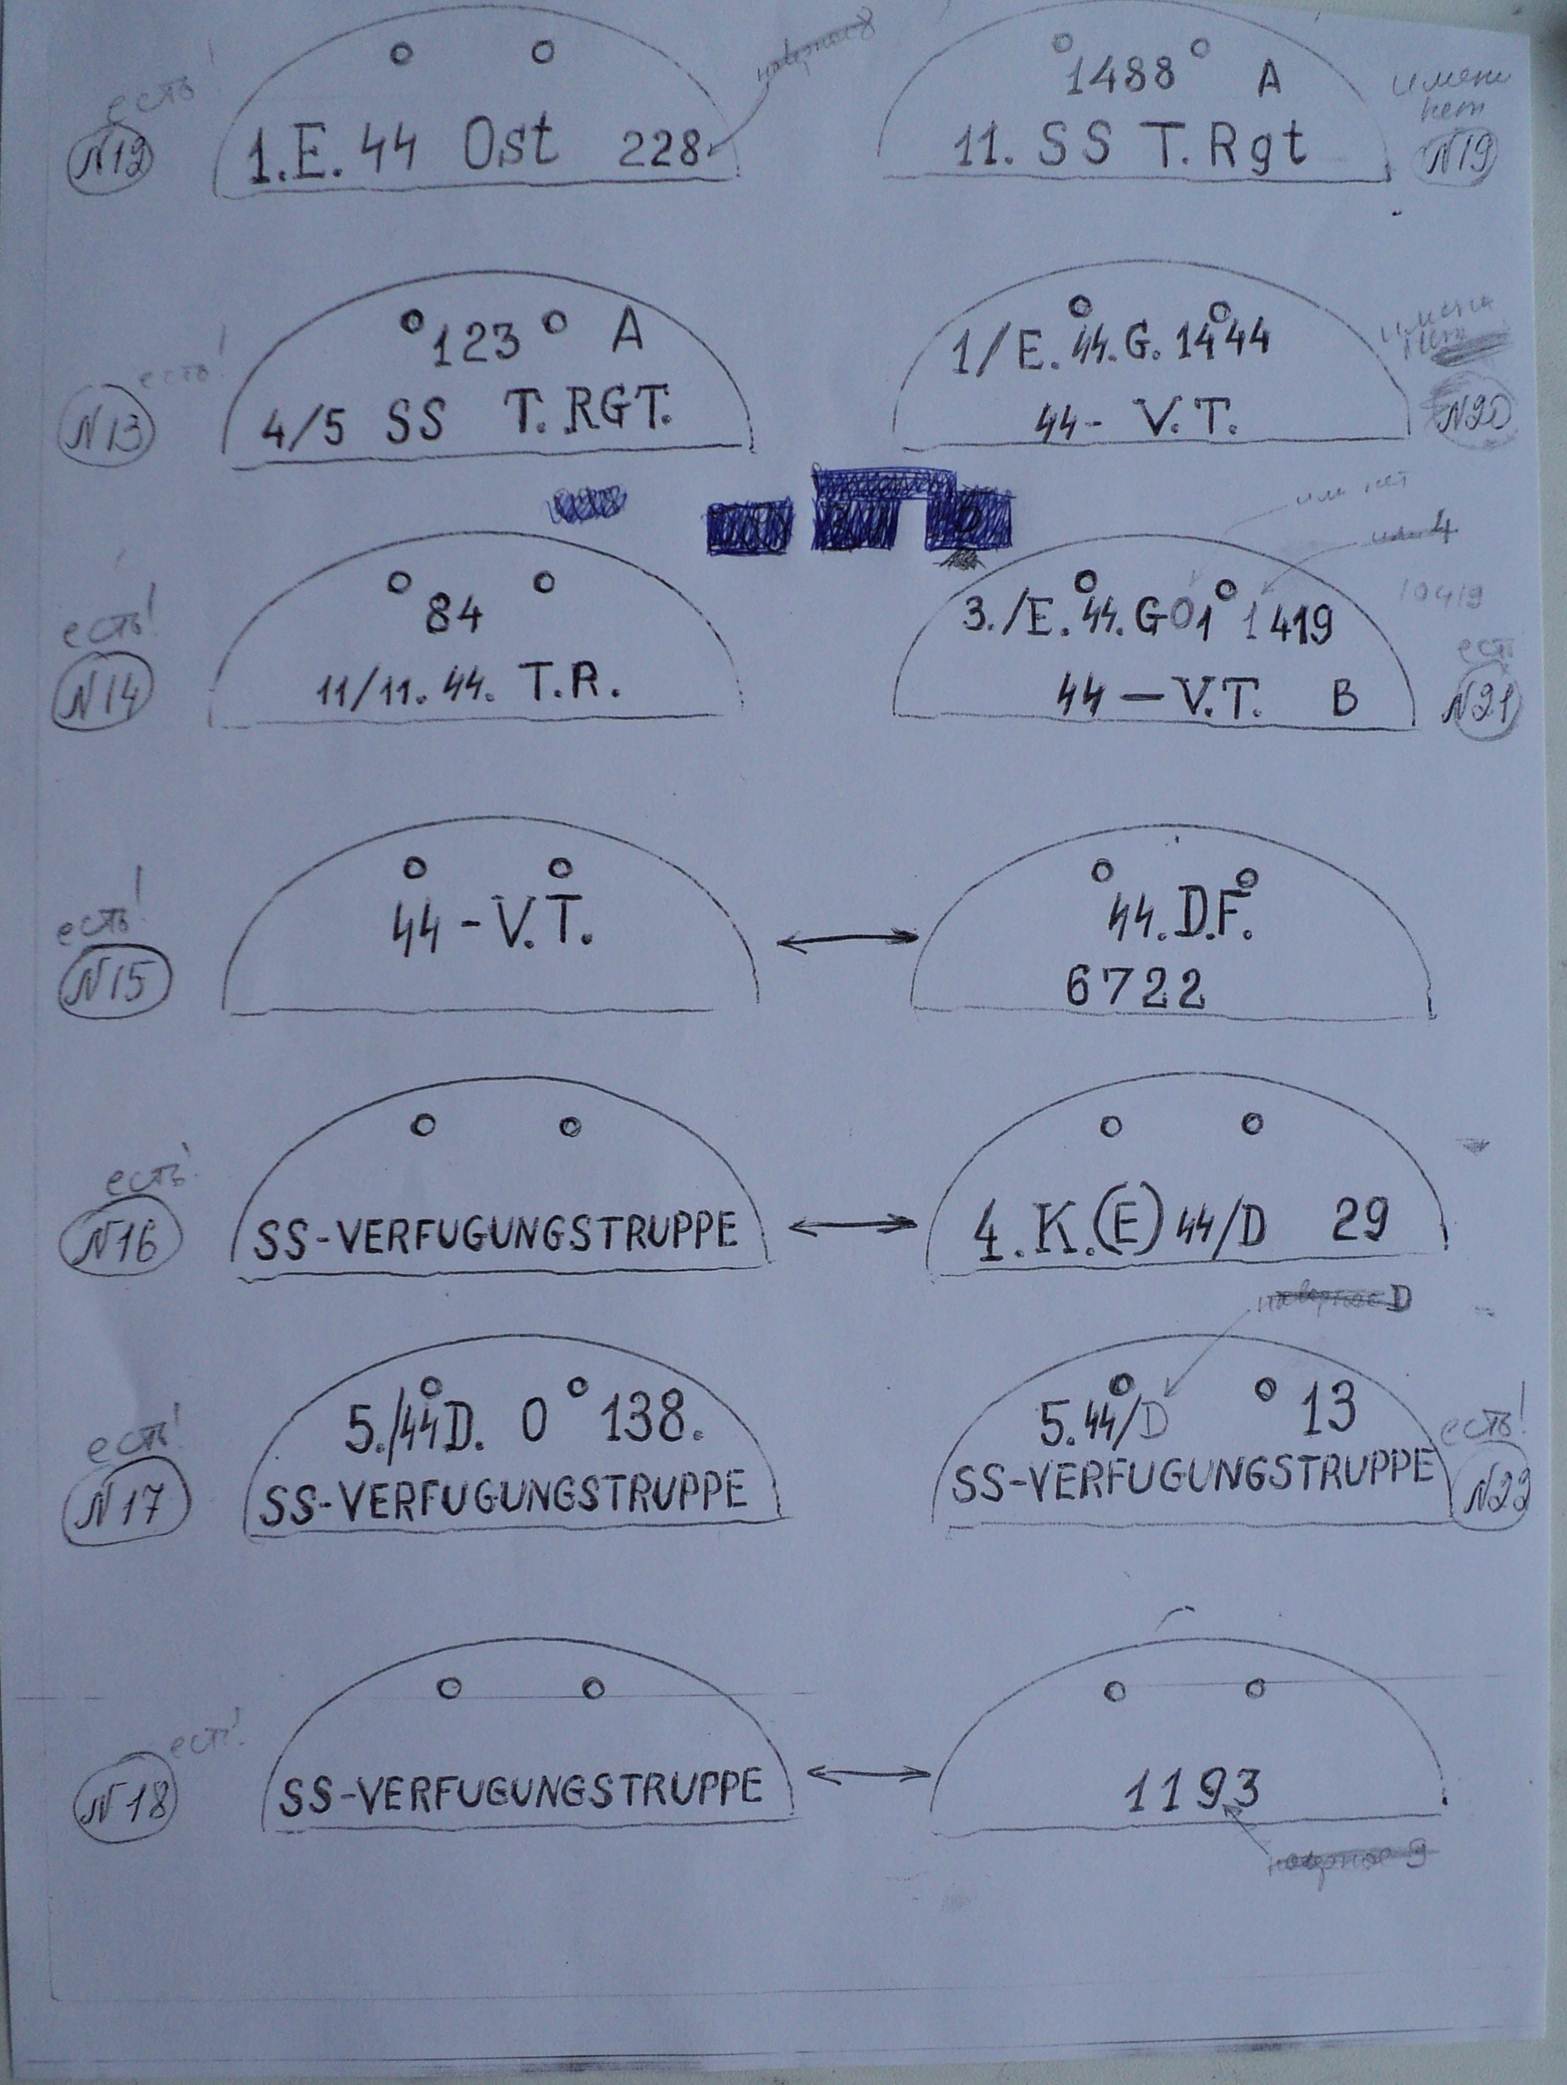 есть!
N12
1.E. 44 Ost 228
наверное 8
1488 A
11. SS T. Rgt
имени
нет
N19
есть!
N13
123 A
4/5 SS T. RGT.
1/E. 44. G. 1444
44- V.T.
имени
нет
N20
есть!
N14
84
11/11. 44. T.R.
или нет
или 4
3./E. 44. G 01 1419
44 – V.T. B
10419
есть
N21
есть!
N15
44 - V.T.
44. D.F.
6722
есть!
N16
SS-VERFUGUNGSTRUPPE
4. K.(E) 44/D 29
есть!
N17
5./44 D. 0 138.
SS-VERFUGUNGSTRUPPE
наверное D
5. 44/D 13
SS-VERFUGUNGSTRUPPE
есть!
N22
есть!
N18
SS-VERFUGUNGSTRUPPE
1193
наверное 9